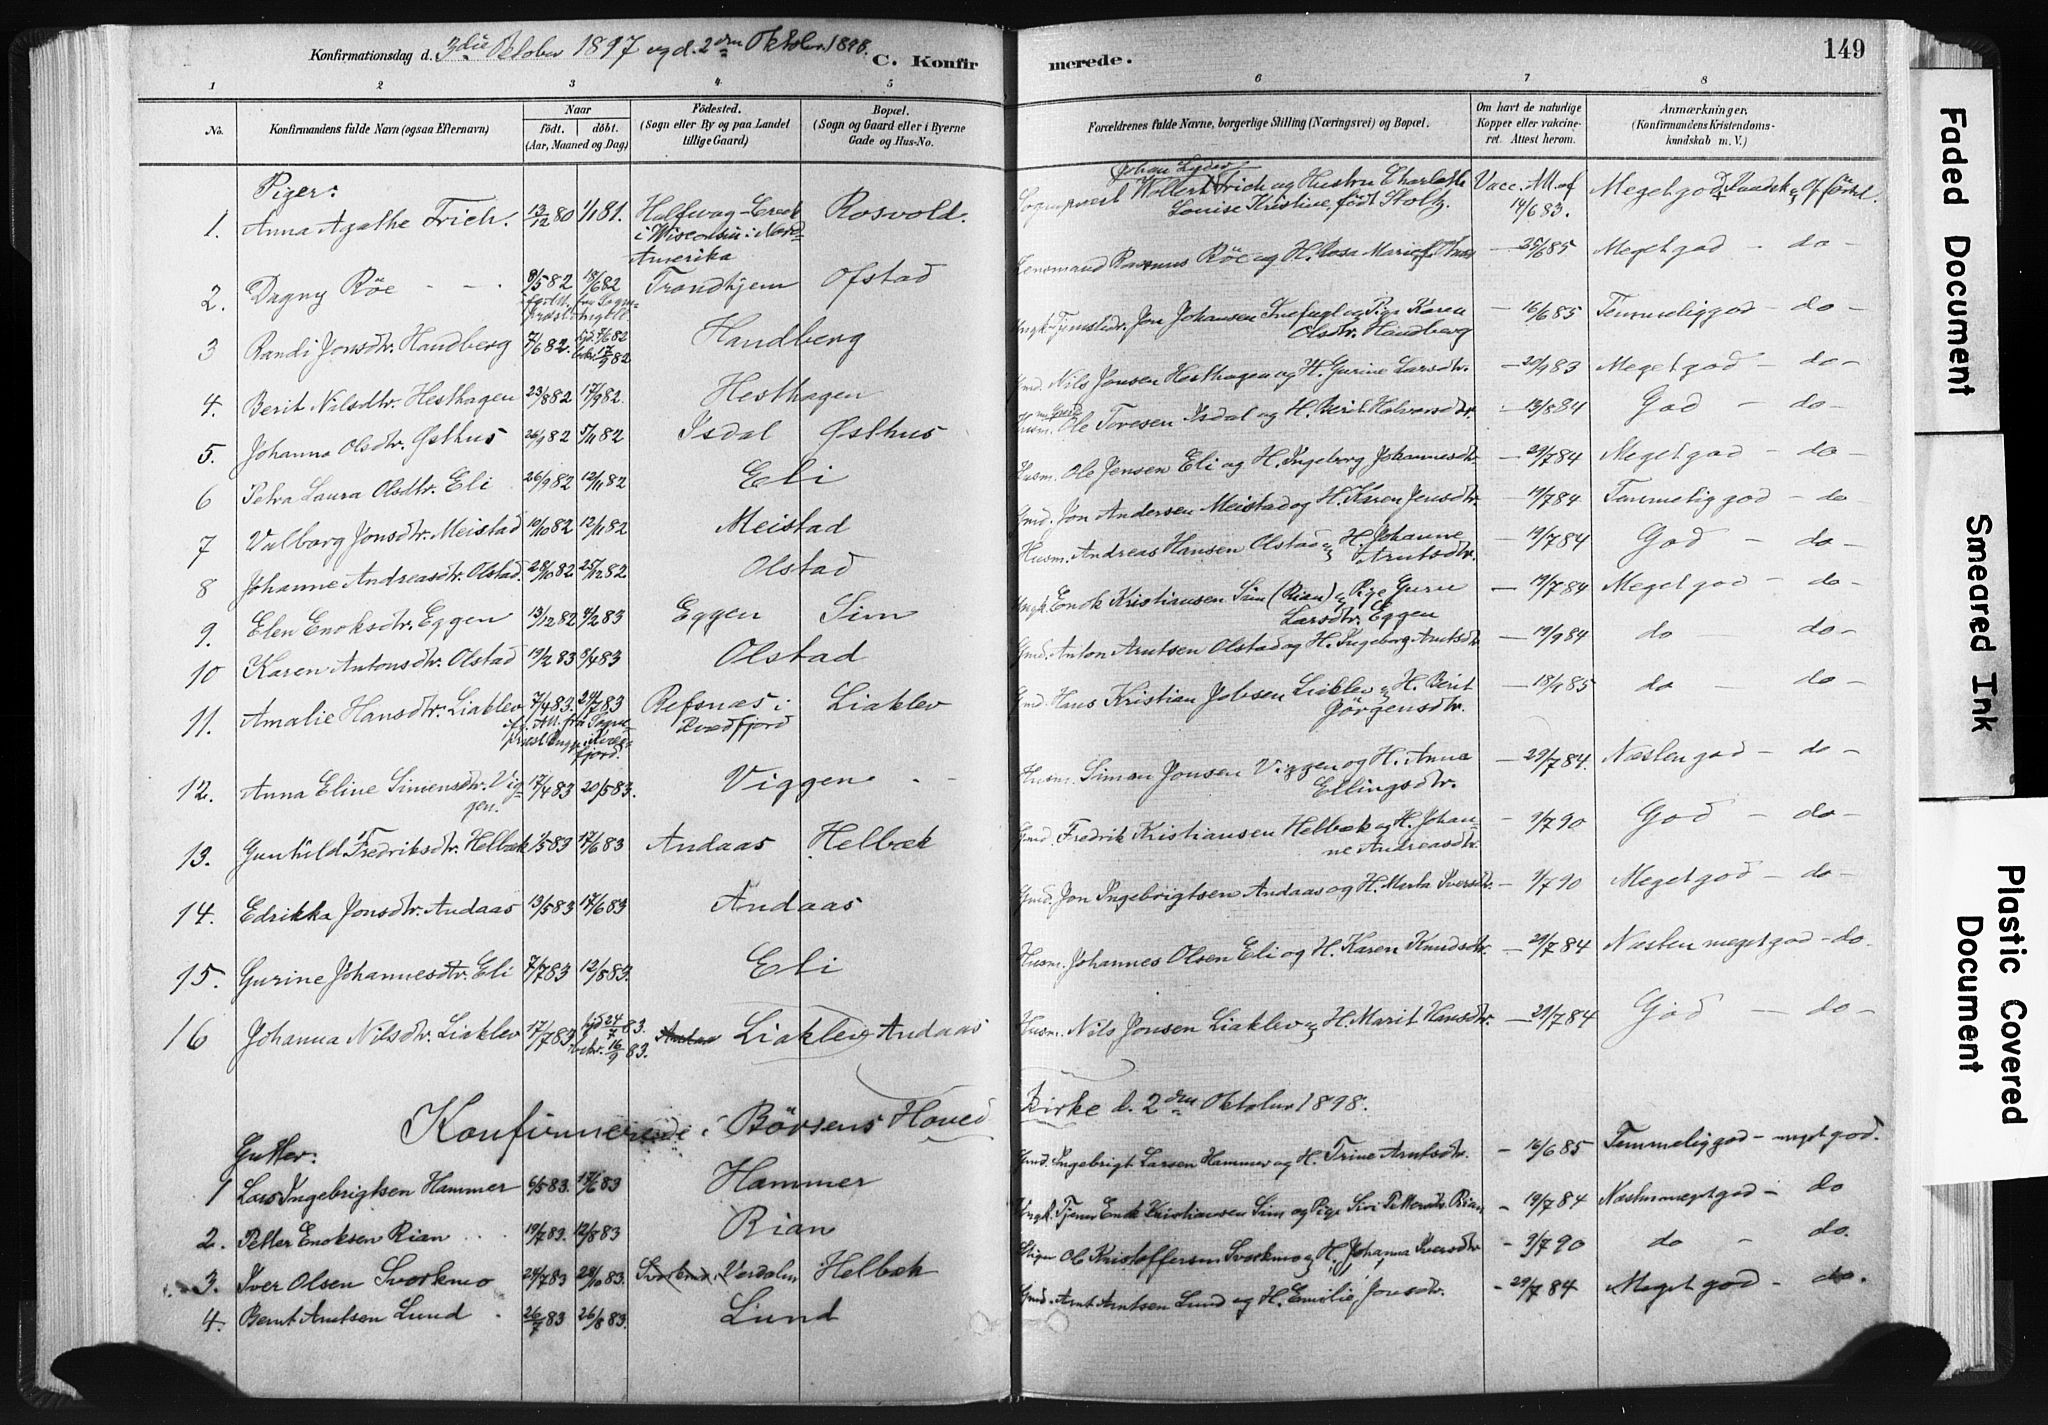 Konfirmationsdag d. 3die Oktober 1897 og d. 2den Oktober 1898. C. Konfirmerede. 149
1 2 3 4 5 6 7 8
No. Konfirmandens fulde Navn (ogsaa Efternavn) Naar født. døbt. (Aar, Maaned og Dag) Fødested. (Sogn eller By og paa Landet tillige Gaard) Bopæl. (Sogn og Gaard eller i Byerne Gade og Hus-No. Forældrenes fulde Navne, borgerlige Stilling (Næringsvei) og Bopæl. Om havt de naturlige Kopper eller vakcineret. Attest herom. Anmærkninger. (Konfirmandens Kristendomskundskab m. V.)
Piger:
1. Anna Agathe Erich. 13/12 80 1/1 81. Halfway-Creek i Wisconsin i Nord-Amerika Rosvold. Sogneprest Johan Lyder Wollert Erich og Hustru Charlotte Louise Kristine, født Stoltz. Vacc. Att. af 14/6 83. Meget god
2. Dagny Röe 9/5 82 18/6 82 Trondhjem Ofstad Lensmand Rasmus Röe og H. Rosa Marie — 25/6 85 Meget god - do -
3 Randi Jonsdtr. Haudberg 7/6 82. hjd. 9/6 82 bekr. 17/9 82 Haudberg Ungk. Jon Johansen og Pige Karen Olsdtr. Haudberg — 16/6 85 Temmelig god - do -
4. Berit Nilsdtr. Hesthagen 23/8 82 17/9 82. Hesthagen Gmd. Nils Jonsen Hesthagen og H. Gurine Larsdtr. — 20/9 83 Meget god - do -
5. Johanna Olsdtr. Østhus 26/9 82 5/11 82 Isdal Østhus Husm. Ole Toresen Isdal og H. Berit Halvorsdtr. — 13/8 84 God - do -
6 Petra Laura Olsdtr. Eli 26/9 82 12/11 82 Eli Husm. Ole Jensen Eli og H. Ingeborg Johannesdtr. — 29/7 84 Meget god - do -
7 Valborg Jonsdtr. Meistad 10/10 82 12/11 82 Meistad Gmd. Jon Andersen Meistad og H. Karen Jensdtr. — 19/7 84 Temmelig god - do
8 Johanne Andreasdtr. Olstad. 28/10 82 25/12 82. Olstad Husm. Andreas Hansen Olstad og H. Johanne Arntsdtr. — 19/7 84 God - do -
9. Elen Enoksdtr. Eggen 13/12 82 4/2 83 Eggen Sim Ungk. Enok Kristiansen Sim (Rian) og Pige Guru Larsdtr. Eggen — 19/7 84 Meget god - do -
10 Karen Antonsdtr. Olstad 19/2 83 8/4 83 Olstad Gmd. Anton Arntsen Olstad og H. Ingeborg Arntsdtr. — 19/9 84 do - do -
11. Amalie Hansdtr. Liaklev 7/4 83. 29/7 83 Refsnæs i Kvædfjord Liaklev Gmd. Hans Kristian Jobsen Liaklev og H. Berit Jörgensdtr. — 18/9 85 do - do -
12. Anna Eline Simensdtr. Viggen. 17/4 83 20/5 83. Viggen Husm. Simon Jonsen Viggen og H. Anna Ellingsdtr. — 29/7 84. Næsten god - do -
13. Gunhild Fredriksdtr. Helbæk 1/5 83 17/6 83 Andaas Helbæk Gmd. Fredrik Kristiansen Helbæk og H. Johanne Andreasdtr. — 9/7 90 God - do -
14. Edrikka Jonsdtr. Andaas 13/5 83 17/6 83 Andaas Gmd. Jon Ingebrigtsen Andaas og H. Marta Iversdtr. — 9/7 90 Meget god - do -
15. Gurine Johannesdtr. Eli 7/7 83 12/8 83. Eli Husm. Johannes Olsen Eli og H. Karen Knudsdtr. — 29/7 84 Næsten meget god - do.
16 Johanna Nilsdtr. Liaklev 17/7 83. hjd 24/7 83. bekr. 16/9 83. Liaklev Andaas Husm. Nils Jonsen Liaklev og H. Marit Hansdtr. — 29/7 84 God - do -
Konfirmerede i Börsens Hoved Kirke d. 2den Oktober 1898.
Gutter:
1 Lars Ingebrigtsen Hammer 6/5 83. 17/6 83 Hammer Gmd. Ingebrigt Larsen Hammer og H. Trine Arntsdtr. - 16/6 85 Temmelig god - meget god.
2. Petter Enoksen Rian 19/7 83. 12/8 83 Rian Ungk. Tjener Enok Kristiansen Sim og Pige Siri Pettersdtr. Rian - 19/7 84 Næsten meget god - do
3. Iver Olsen Svorkmo 24/7 83 28/10 83. Værdalen Helbæk Ole Kristoffersen Svorkmo og H. Johanna Iversdtr - 9/7 90 do - do.
4. Bernt Arntsen Lund 26/7 83 26/8 83. Lund Gmd. Arnt Arntsen Lund og H. Emilie Jonsdtr. - 29/7 84 Meget god - do.
Faded Document
Smeared Ink
Plastic Covered Document